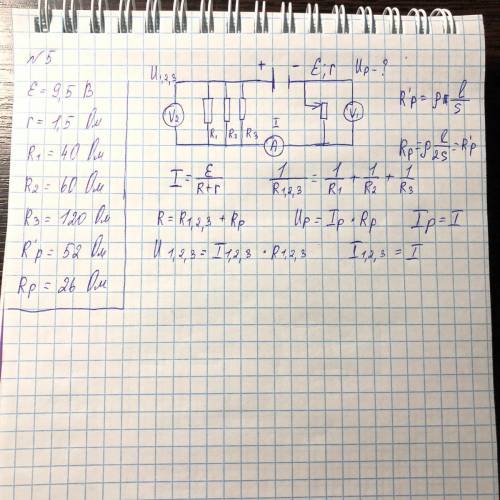 №5
ε = 9,5 В
r = 1,5 Ом
R1 = 40 Ом
R2 = 60 Ом
R3 = 120 Ом
R'p = 52 Ом
Rp = 26 Ом
U1,2,3 + - ε; r Up - ?
V2 R1 R2 R3 I A V1
R'p = ρ l/S
Rp = ρ l/2S = R'p
I = ε/R+r 1/R1,2,3 = 1/R1 + 1/R2 + 1/R3
R = R1,2,3 + Rp Up = Ip · Rp Ip = I
U1,2,3 = I1,2,3 · R1,2,3 I1,2,3 = I